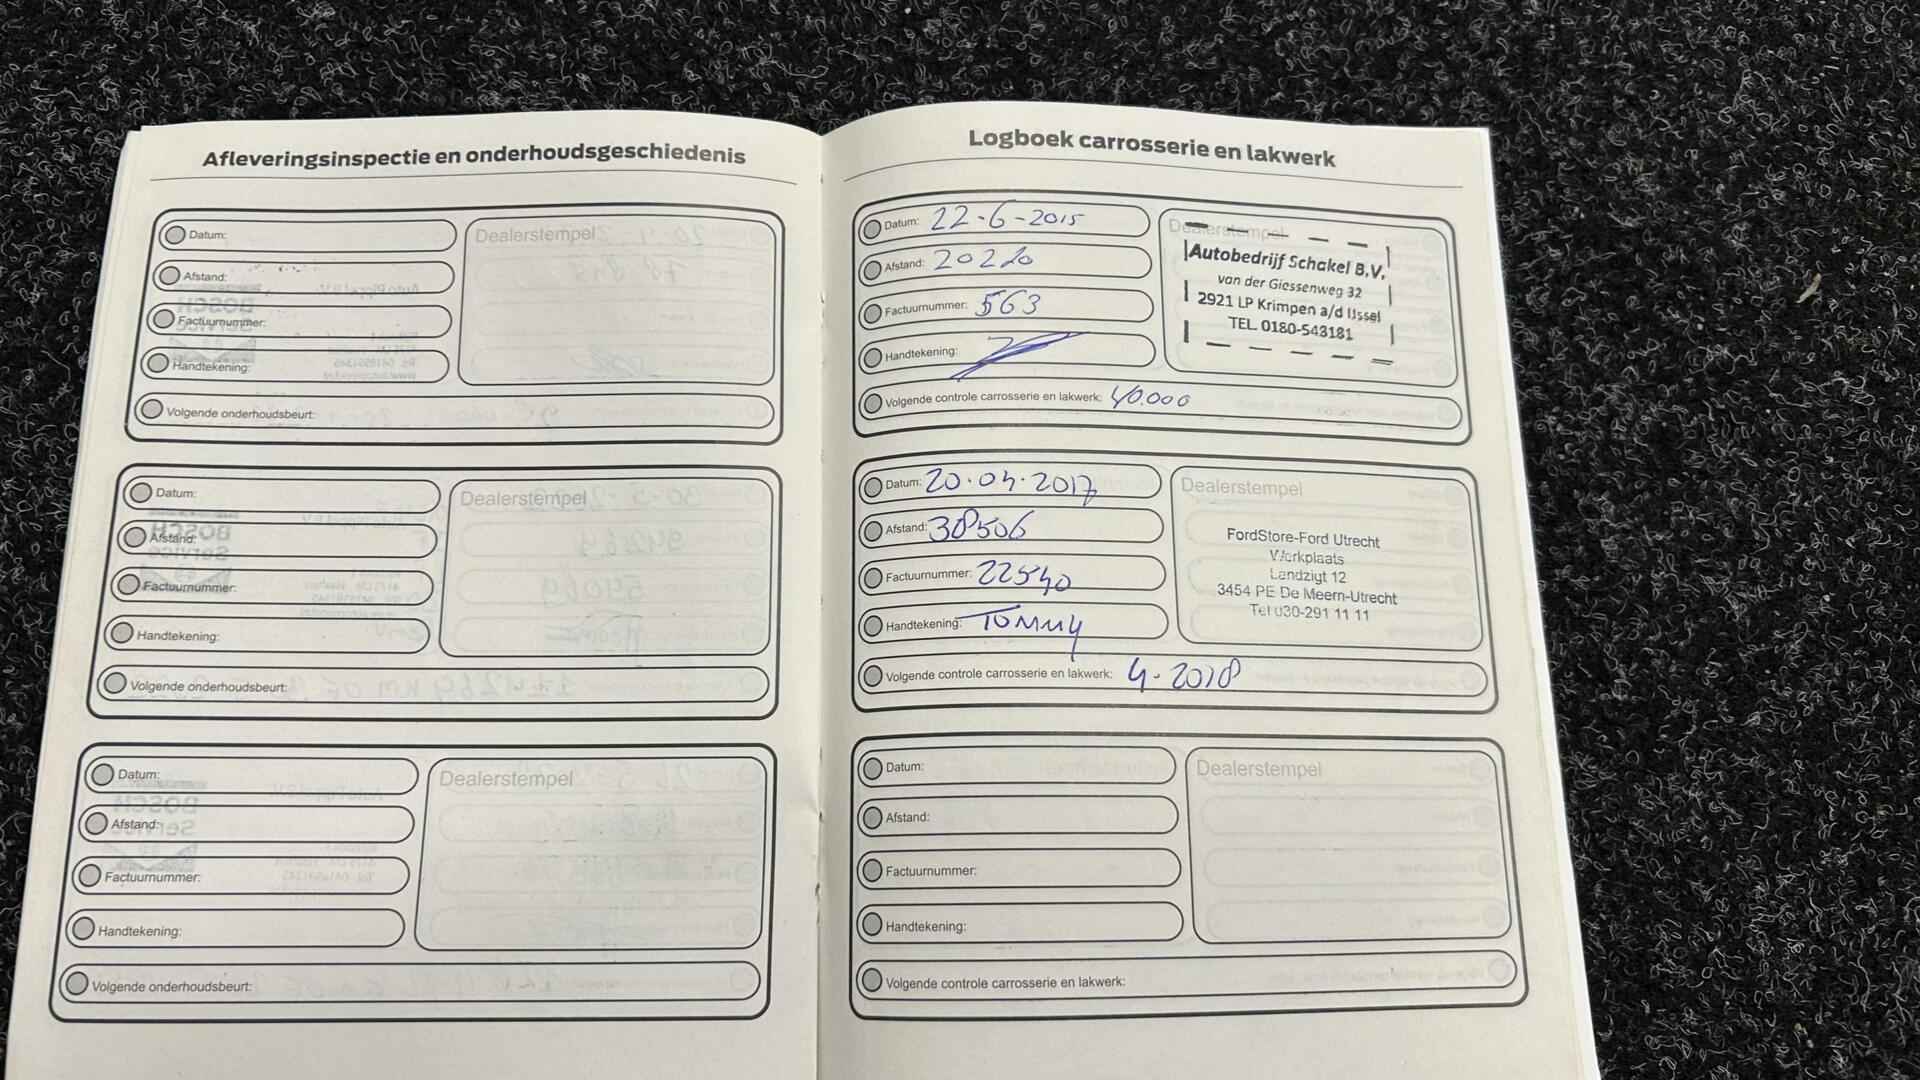 Afleveringsinspectie en onderhoudsgeschiedenis
Datum:
Dealerstempel
Afstand:
Factuurnummer:
Handtekening:
Volgende onderhoudsbeurt:
Datum:
Dealerstempel
Afstand:
Factuurnummer:
Handtekening:
Volgende onderhoudsbeurt:
Datum:
Dealerstempel
Afstand:
Factuurnummer:
Handtekening:
Volgende onderhoudsbeurt:
Logboek carrosserie en lakwerk
Datum: 22-6-2015
Afstand: 20220
Factuurnummer: 563
Handtekening:
Dealerstempel
Autobedrijf Schakel B.V.
van der Giessenweg 32
2921 LP Krimpen a/d IJssel
TEL. 0180-543181
Volgende controle carrosserie en lakwerk: 40.000
Datum: 20.04.2017
Afstand: 38506
Factuurnummer: 22540
Handtekening: Tommy
Dealerstempel
FordStore-Ford Utrecht
Werkplaats
Landzigt 12
3454 PE De Meern-Utrecht
Tel 030-291 11 11
Volgende controle carrosserie en lakwerk: 4.2018
Datum:
Dealerstempel
Afstand:
Factuurnummer:
Handtekening:
Volgende controle carrosserie en lakwerk: